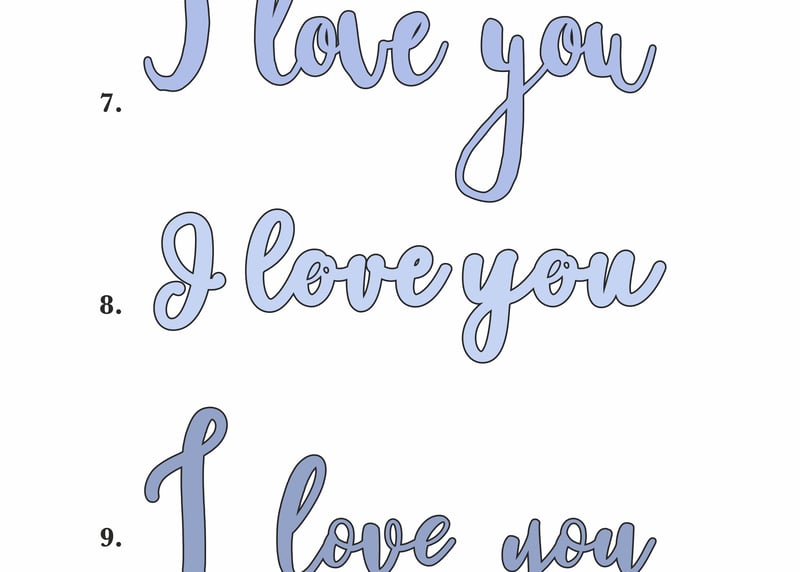 7. I love you
8. I love you
9. I love you